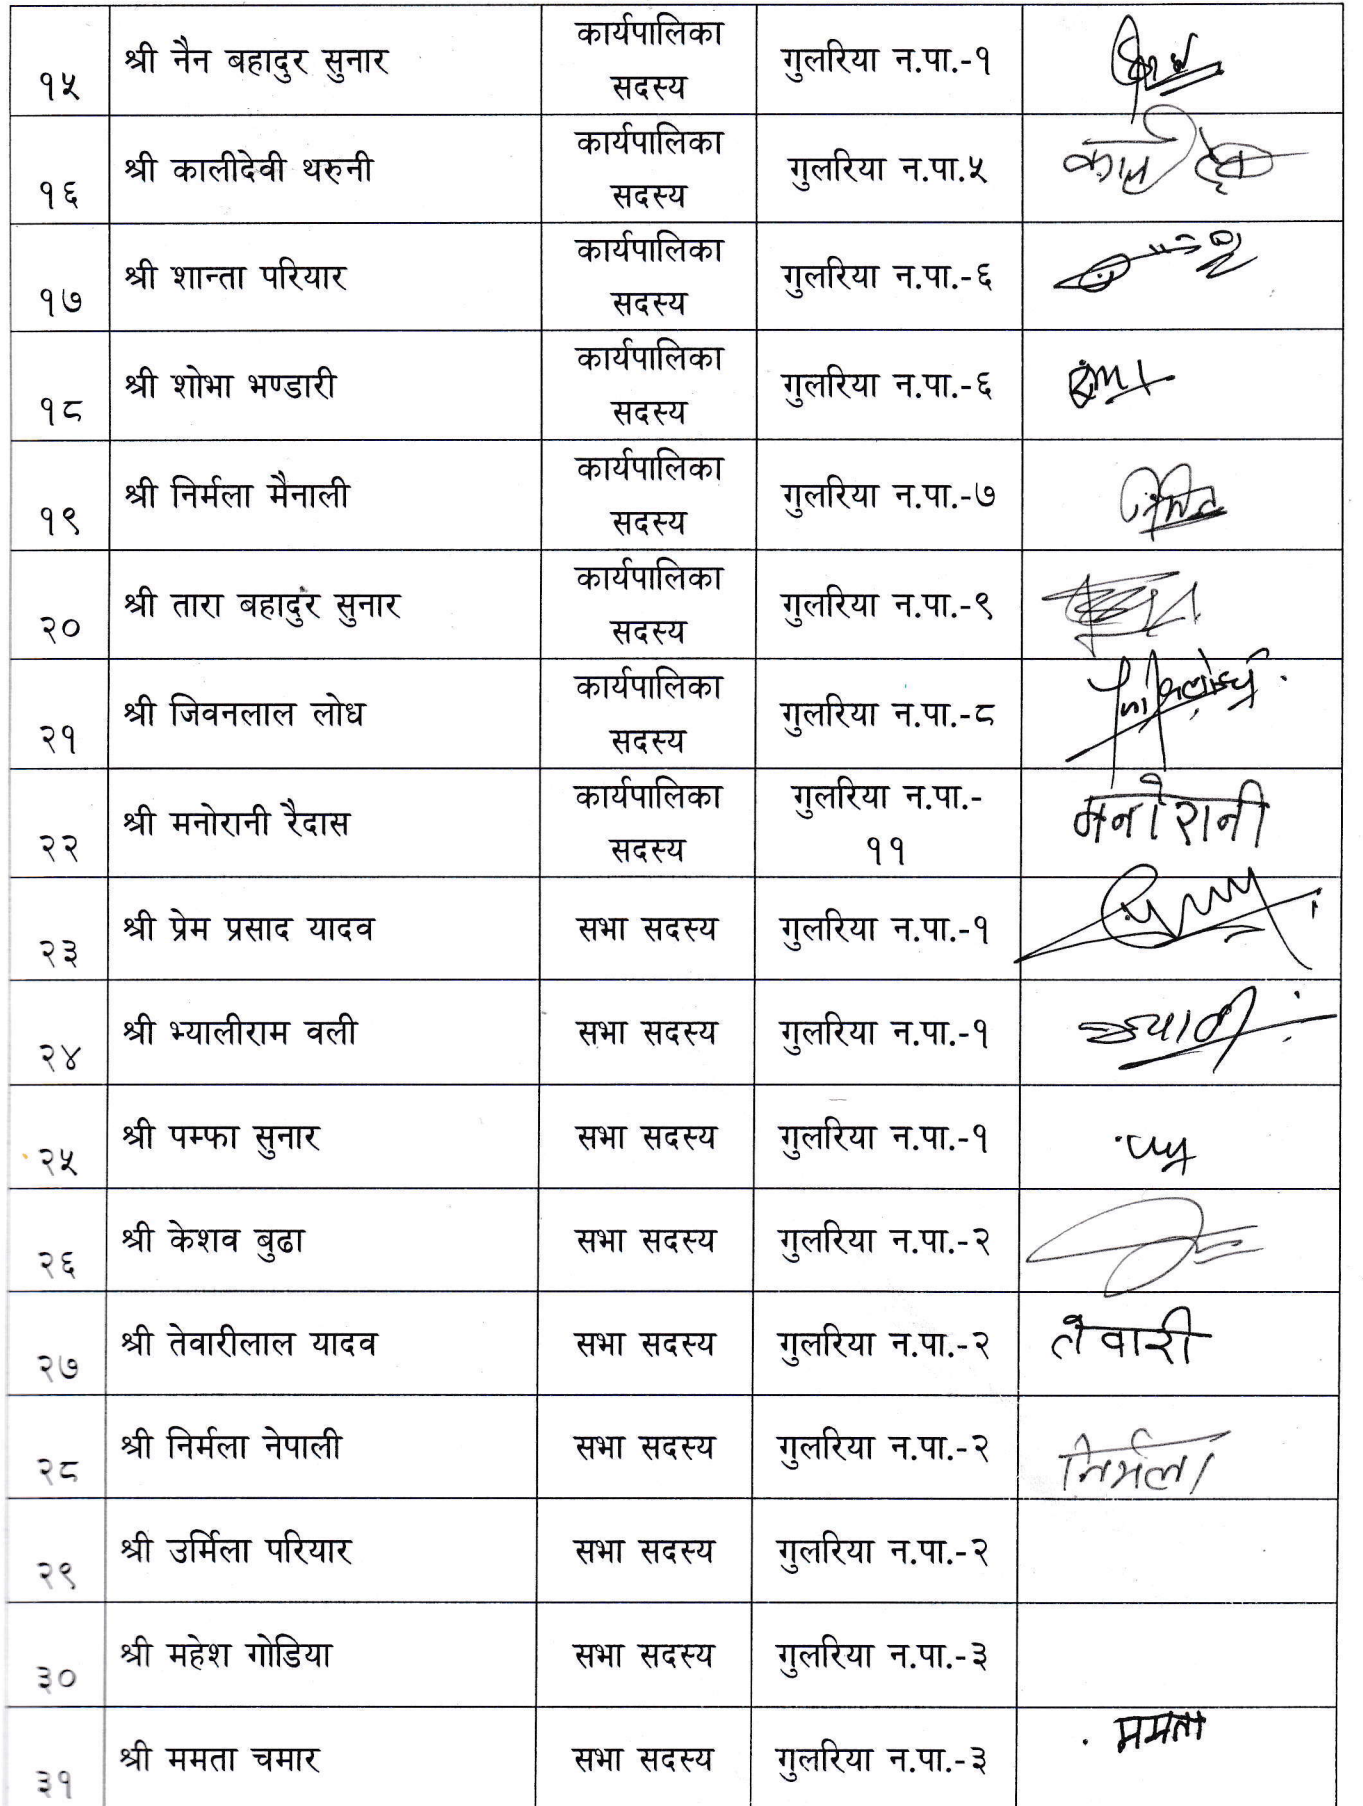 १५ श्री नैन बहादुर सुनार कार्यपालिका सदस्य गुलरिया न.पा.-१
१६ श्री कालीदेवी थरुनी कार्यपालिका सदस्य गुलरिया न.पा.५
१७ श्री शान्ता परियार कार्यपालिका सदस्य गुलरिया न.पा.-६
१८ श्री शोभा भण्डारी कार्यपालिका सदस्य गुलरिया न.पा.-६
१९ श्री निर्मला मैनाली कार्यपालिका सदस्य गुलरिया न.पा.-७
२० श्री तारा बहादुर सुनार कार्यपालिका सदस्य गुलरिया न.पा.-९
२१ श्री जिवनलाल लोध कार्यपालिका सदस्य गुलरिया न.पा.-८
२२ श्री मनोरानी रैदास कार्यपालिका सदस्य गुलरिया न.पा.-११ मनोरानी
२३ श्री प्रेम प्रसाद यादव सभा सदस्य गुलरिया न.पा.-१
२४ श्री भ्यालीराम वली सभा सदस्य गुलरिया न.पा.-१
२५ श्री पम्फा सुनार सभा सदस्य गुलरिया न.पा.-१
२६ श्री केशव बुढा सभा सदस्य गुलरिया न.पा.-२
२७ श्री तेवारीलाल यादव सभा सदस्य गुलरिया न.पा.-२ तेवारी
२८ श्री निर्मला नेपाली सभा सदस्य गुलरिया न.पा.-२ निर्मला
२९ श्री उर्मिला परियार सभा सदस्य गुलरिया न.पा.-२
३० श्री महेश गोडिया सभा सदस्य गुलरिया न.पा.-३
३१ श्री ममता चमार सभा सदस्य गुलरिया न.पा.-३ ममता